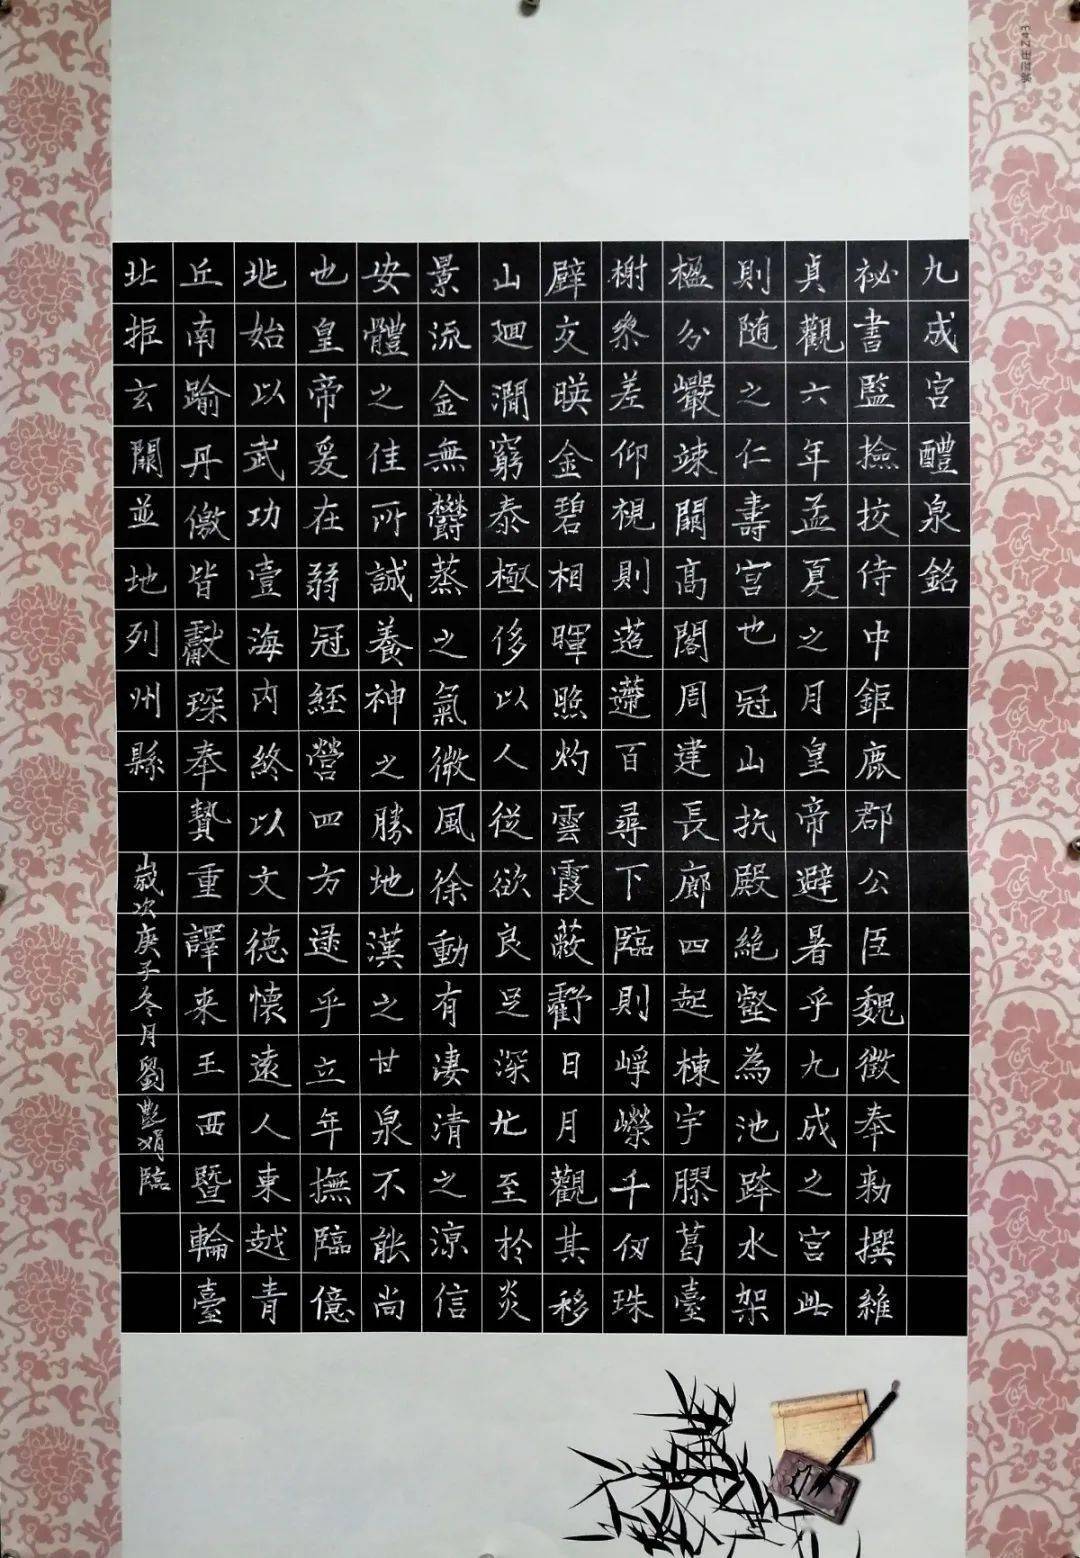 九成宮醴泉銘
祕書監撿挍侍中鉅鹿郡公臣魏徵奉勑撰維
貞觀六年孟夏之月皇帝避暑乎九成之宮此
則隨之仁壽宮也冠山抗殿絕壑為池跨水架
楹分巗竦闕高閣周建長廊四起棟宇膠葛臺
榭叅差仰視則迢遰百尋下臨則崢嶸千仞珠
壁交暎金碧相暉照灼雲霞蔽虧日月觀其移
山廻澗窮泰極侈以人從欲良足深尤至於炎
景流金無欝蒸之氣微風徐動有淒清之涼信
安體之佳所誠養神之勝地漢之甘泉不能尚
也皇帝爰在弱冠經營四方逮乎立年撫臨億
兆始以武功壹海內終以文德懷遠人東越青
丘南踰丹儌皆獻琛奉贄重譯来王西暨輪臺
北拒玄闕並地列州縣
歲次庚子冬月劉艷娟臨